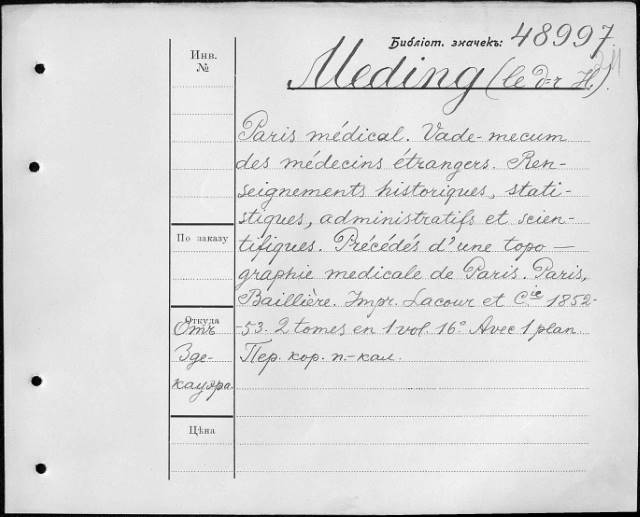 Библіот. значекъ: 48997
Meding (le d-r H.).
Инв.
№
Paris médical. Vade-mecum
des médecins étrangers. Ren-
seignements historiques, stati-
stiques, administratifs et scien-
По заказу
tifiques. Précédés d'une topo-
graphie medicale de Paris. Paris,
Baillière. Impr. Lacour et Cie 1852-
Откуда
Отъ
-53. 2 tomes en 1 vol. 16º Avec 1 plan.
Зде-
Пер. кор. п.-кал.
кауэра
Цѣна